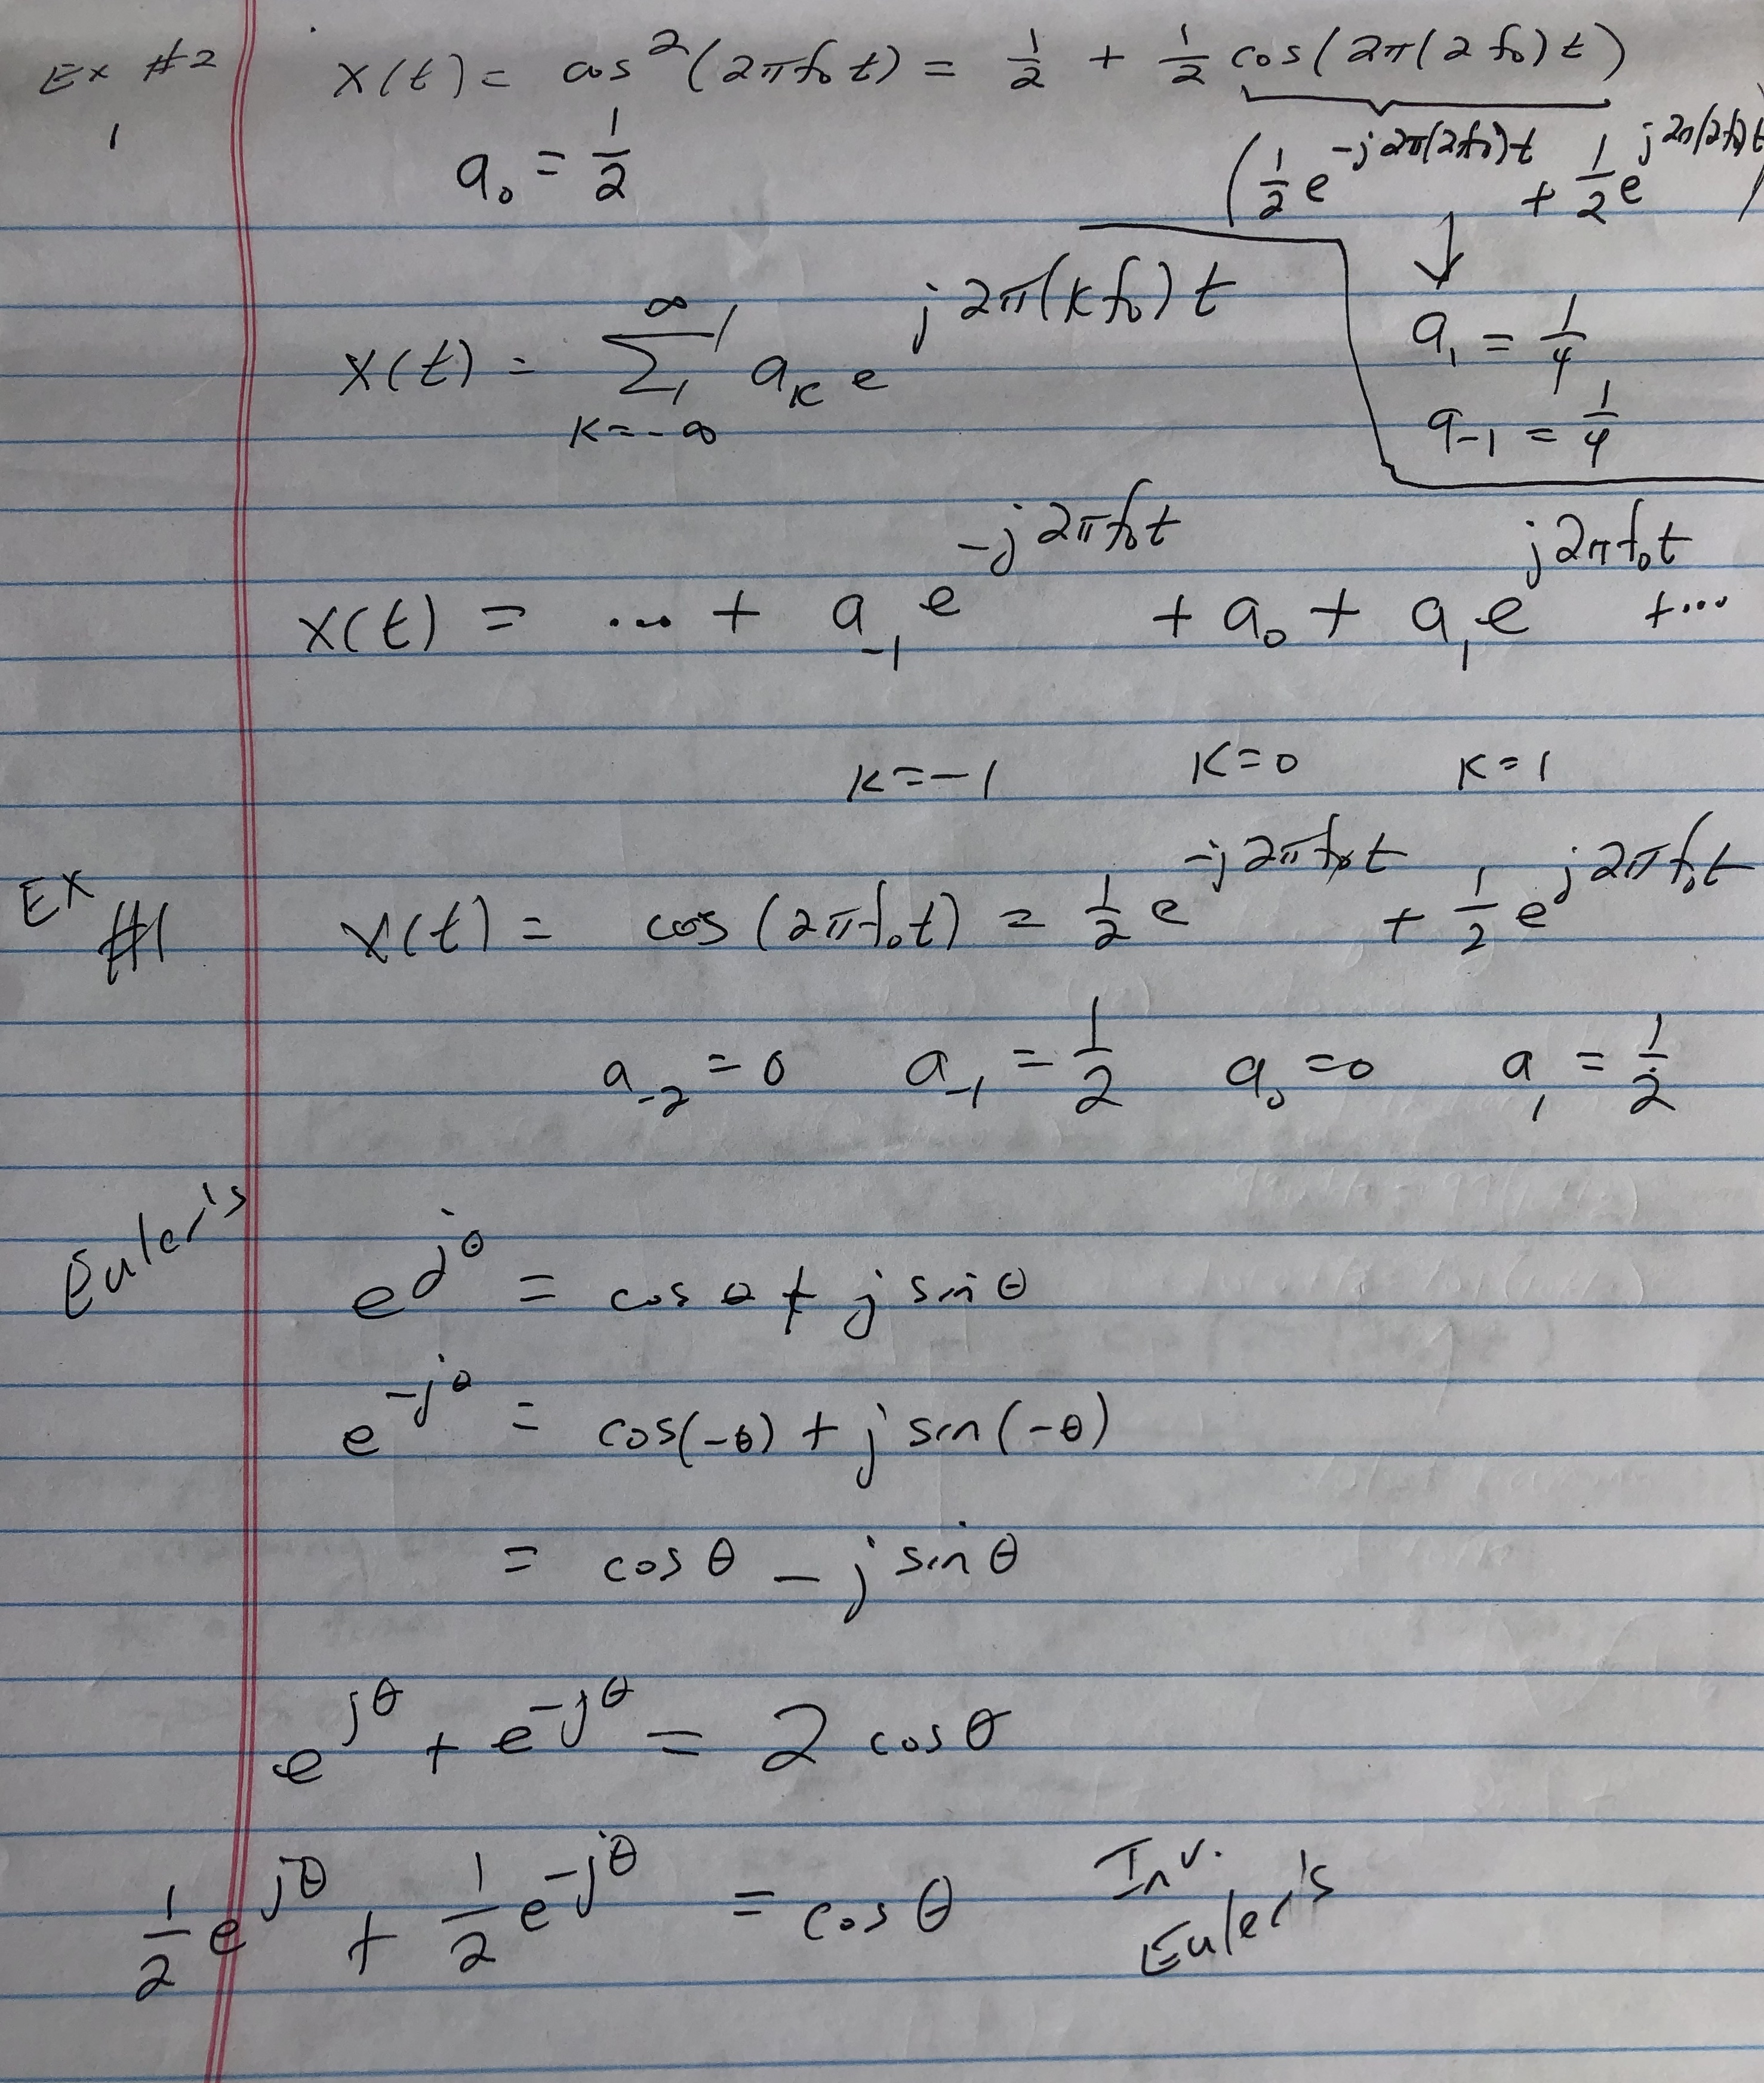 Ex #2 x(t) = cos²(2πf₀t) = 1/2 + 1/2 cos(2π(2f₀)t)
1
a₀ = 1/2
(1/2 e^{-j2π(2f₀)t} + 1/2 e^{j2π(2f₀)t})
↓
x(t) = ∑_{k=-∞}^{∞} aₖ e^{j2π(kf₀)t}
a₁ = 1/4
a₋₁ = 1/4
x(t) = ... + a₋₁ e^{-j2πf₀t} + a₀ + a₁ e^{j2πf₀t} + ...
k=-1 k=0 k=1
Ex #1 x(t) = cos(2πf₀t) = 1/2 e^{-j2πf₀t} + 1/2 e^{j2πf₀t}
a₋₂ = 0 a₋₁ = 1/2 a₀ = 0 a₁ = 1/2
Euler's
e^{jθ} = cos θ + j sin θ
e^{-jθ} = cos(-θ) + j sin(-θ)
= cos θ - j sin θ
e^{jθ} + e^{-jθ} = 2 cos θ
1/2 e^{jθ} + 1/2 e^{-jθ} = cos θ Inv. Euler's